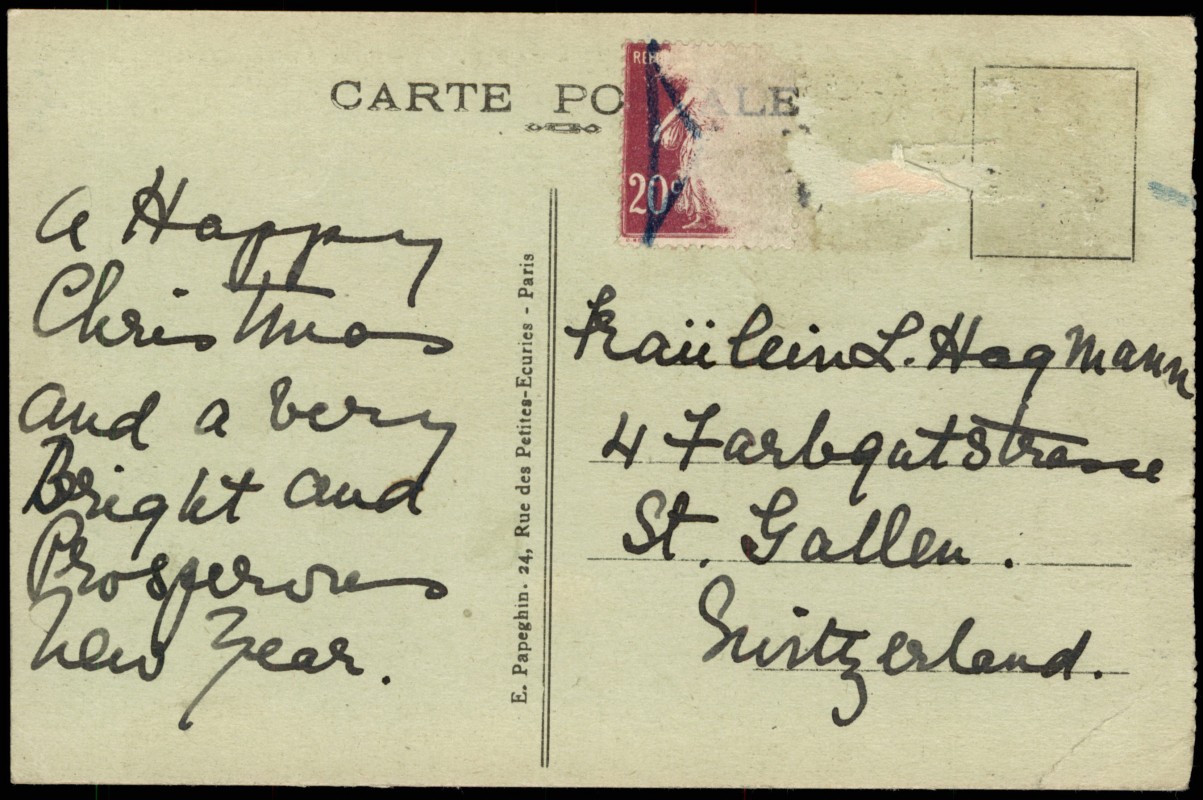 CARTE PO ALE
REP
20c
a Happy
Christmas
and a very
Bright and
Prosperous
New Year.
E. Papeghin. 24, Rue des Petites-Ecuries - Paris
Fraülein L. Hagmann
4 Farbgutstrasse
St. Gallen.
Switzerland.